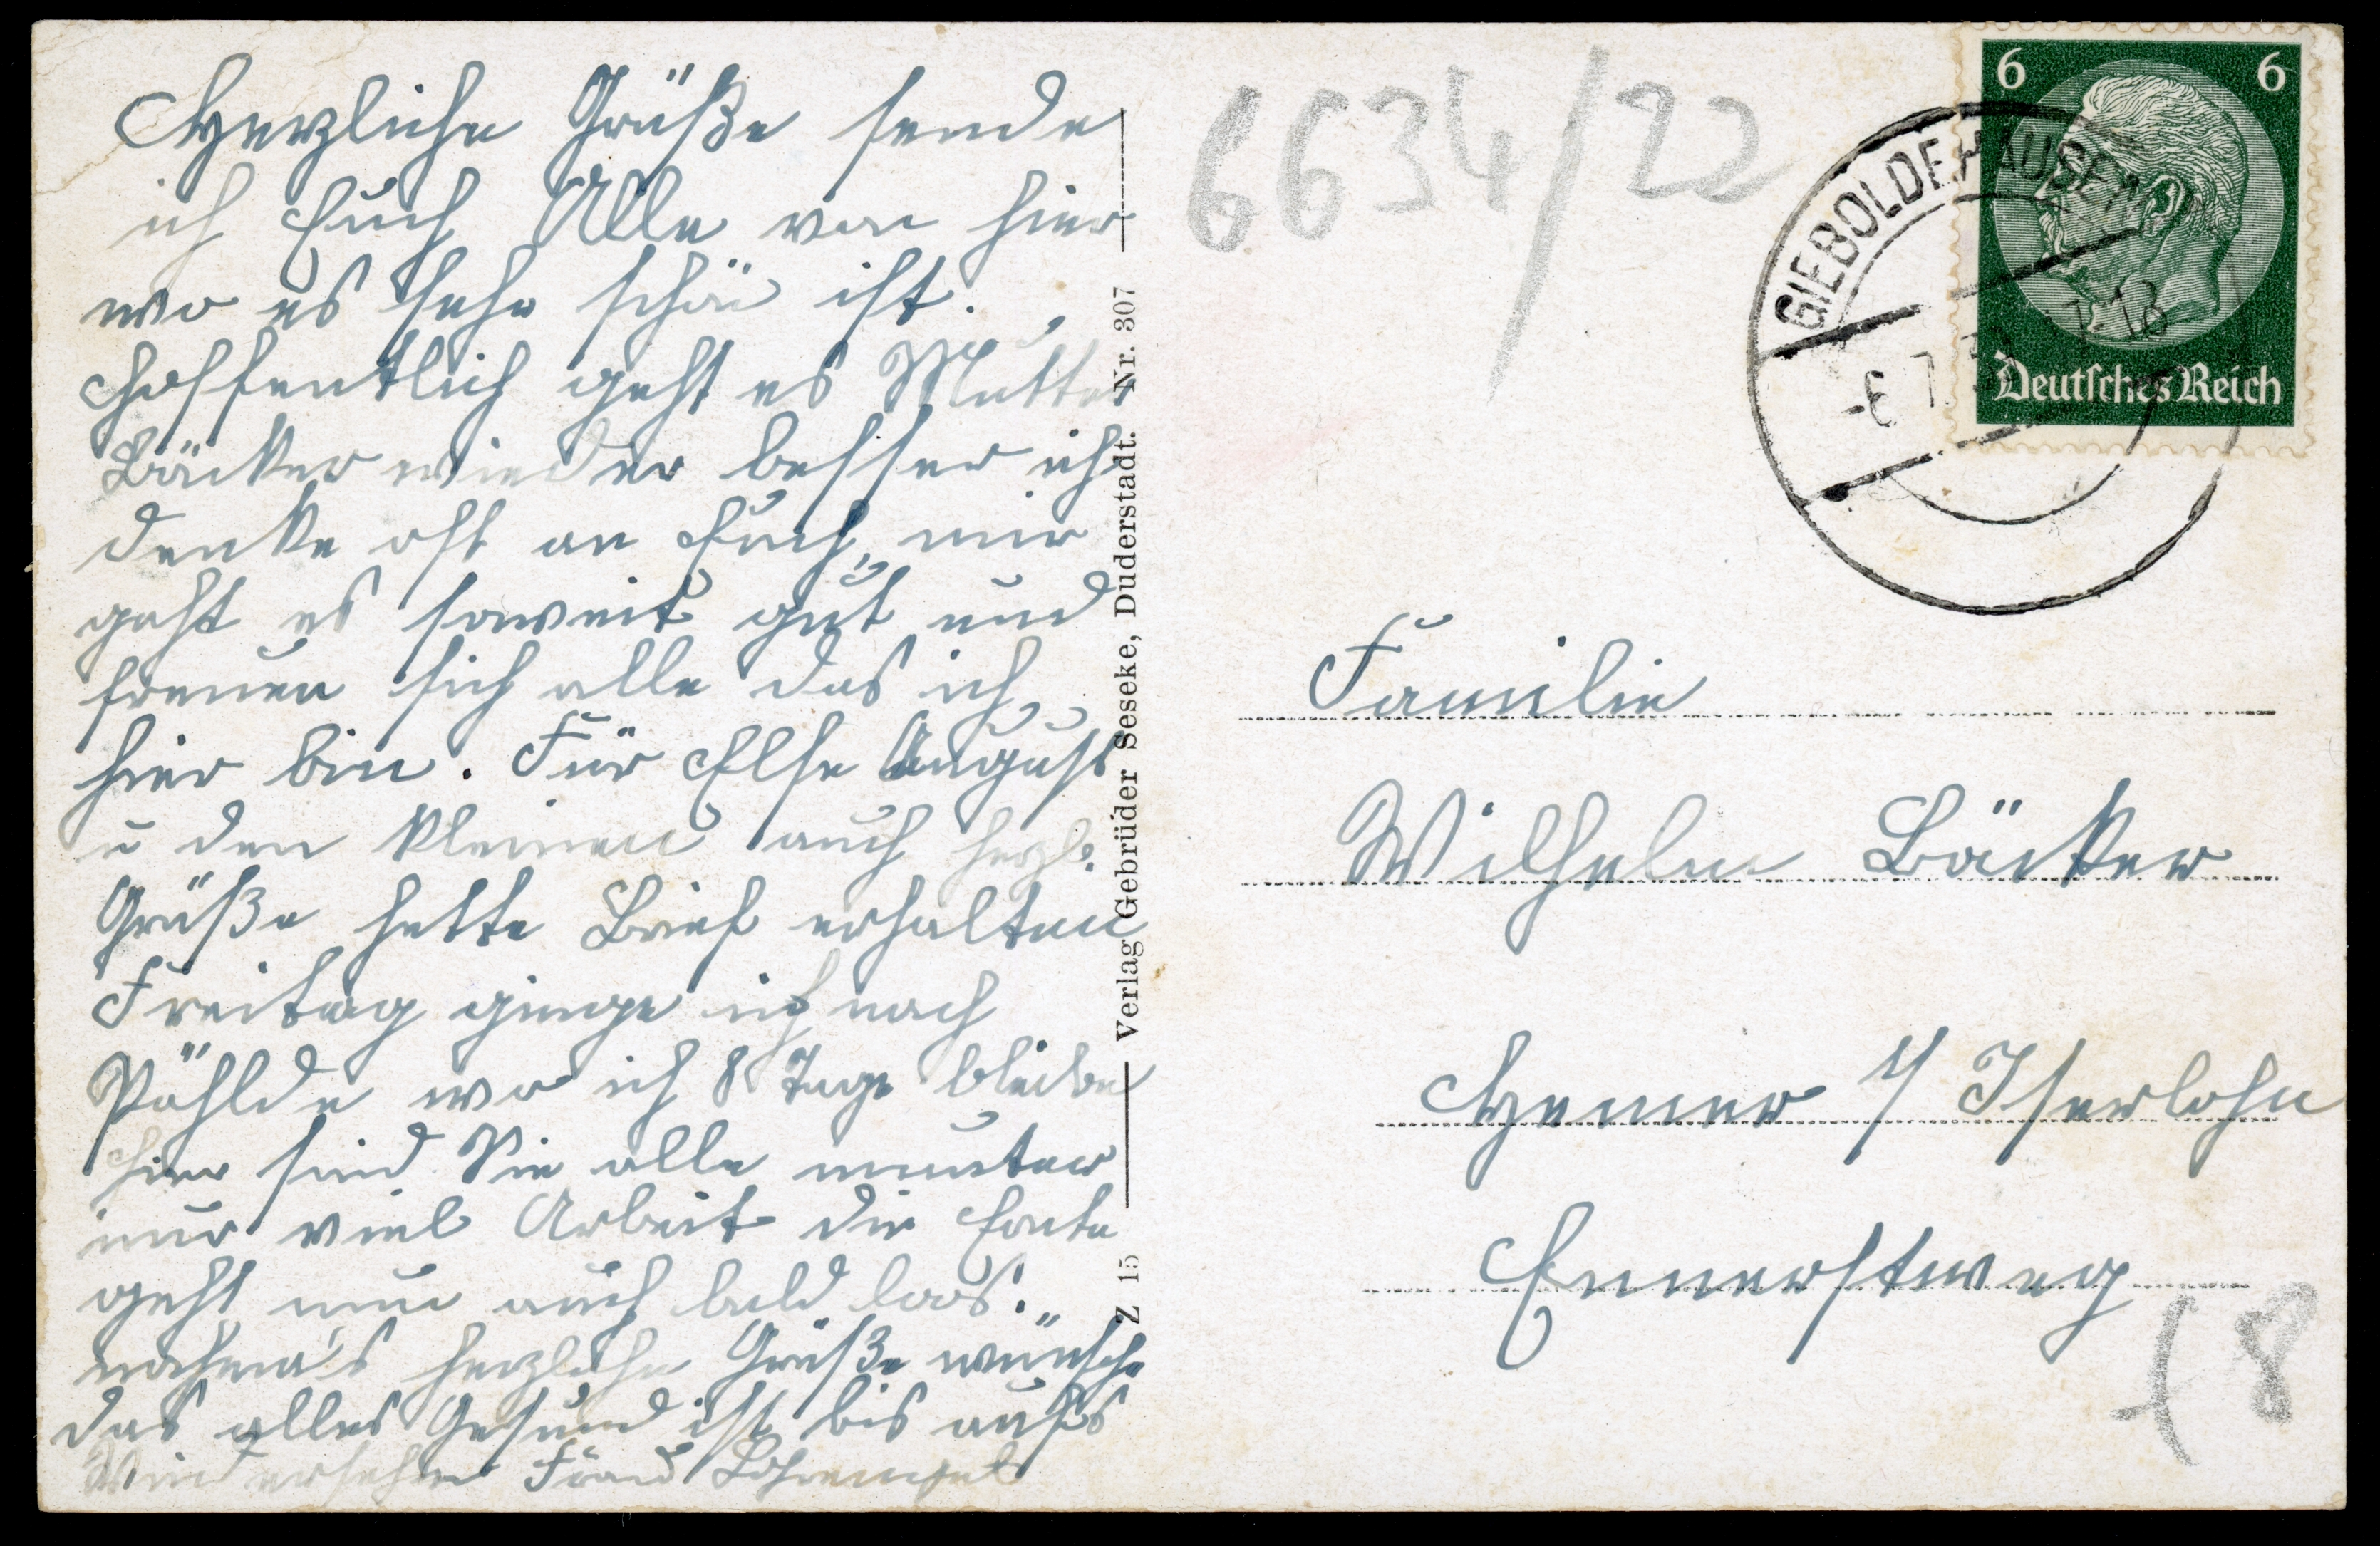 Herzliche Grüße sende
ich Euch Alle von hier
wo es sehr schön ist.
Hoffentlich geht es Mutter
Bäcker wieder besser ich
denke oft an Euch, mir
geht es soweit gut und
freuen sich alle das ich
hier bin. Für Else August
u den kleinen auch herzl.
Grüße hette Brief erhalten
Freitag ginge ich nach
Pöhlde wo ich 8 Tage bleibe
hier sind Sie alle munter
nur viel Arbeit die Ernte
geht nun auch bald loos.
nochma's herzliche Grüße wünsche
das alles Gesund ist bis aufs
Wiedersehn
Verlag Gebrüder Seseke, Duderstadt. Nr. 307
Z 15
6634/22
6 6
Deutsches Reich
GIEBOLDEHAUSEN
Familie
Wilhelm Bäcker
Hemer i/ Iserlohn
Ennerstweg